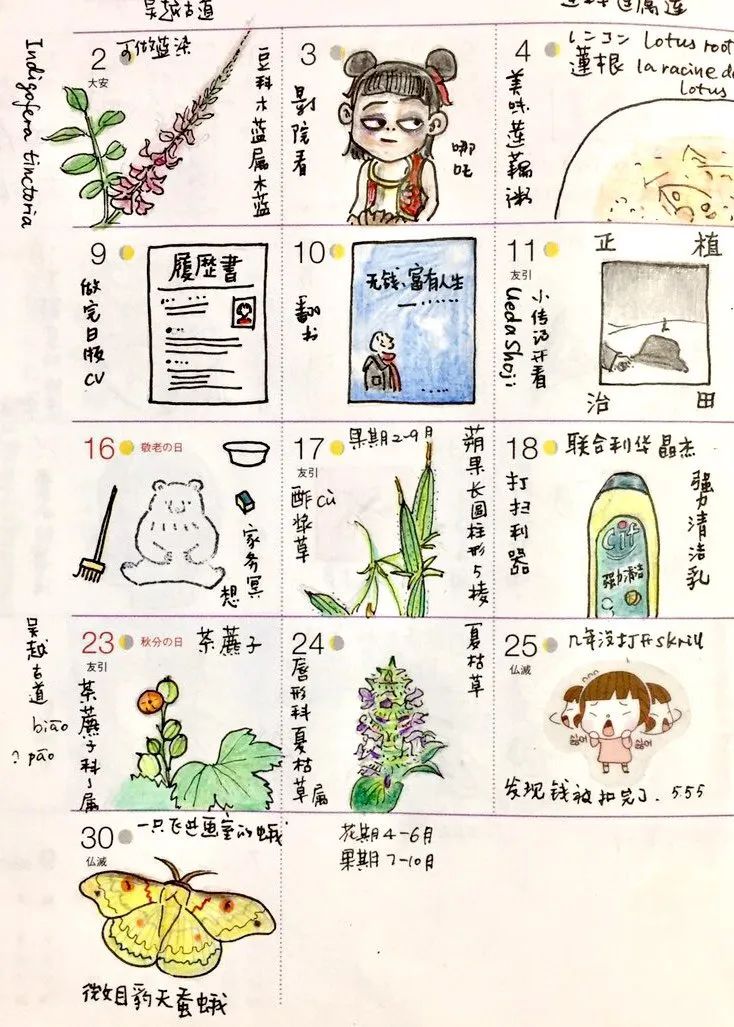 吴越古道
Indigofera tinctoria
2
大安
可做蓝染
豆科木蓝属木蓝
3
影院看
哪吒
4
レンコン Lotus root
蓮根 la racine de
lotus
美味莲藕粥
9
做完日版CV
履歴書
10
翻书
无钱、富有人生
11
友引
小传记开看
Ueda Shoji
正 植
治 田
16
敬老の日
家务冥
想
17
友引
果期2-9月
酢浆草
cù
蒴果长圆柱形5棱
18
联合利华晶杰
打扫利器
强力清洁乳
Cif
强力清洁
吴越古道
biāo
? pāo
23
秋分の日
友引
茶藨子
茶藨子科~属
24
唇形科夏枯草属
夏枯草
25
仏滅
几年没打开skrill
싫어
싫어
发现钱被扣完了. 555
30
仏滅
一只飞进画室的蛾
微目豹天蚕蛾
花期4-6月
果期7-10月